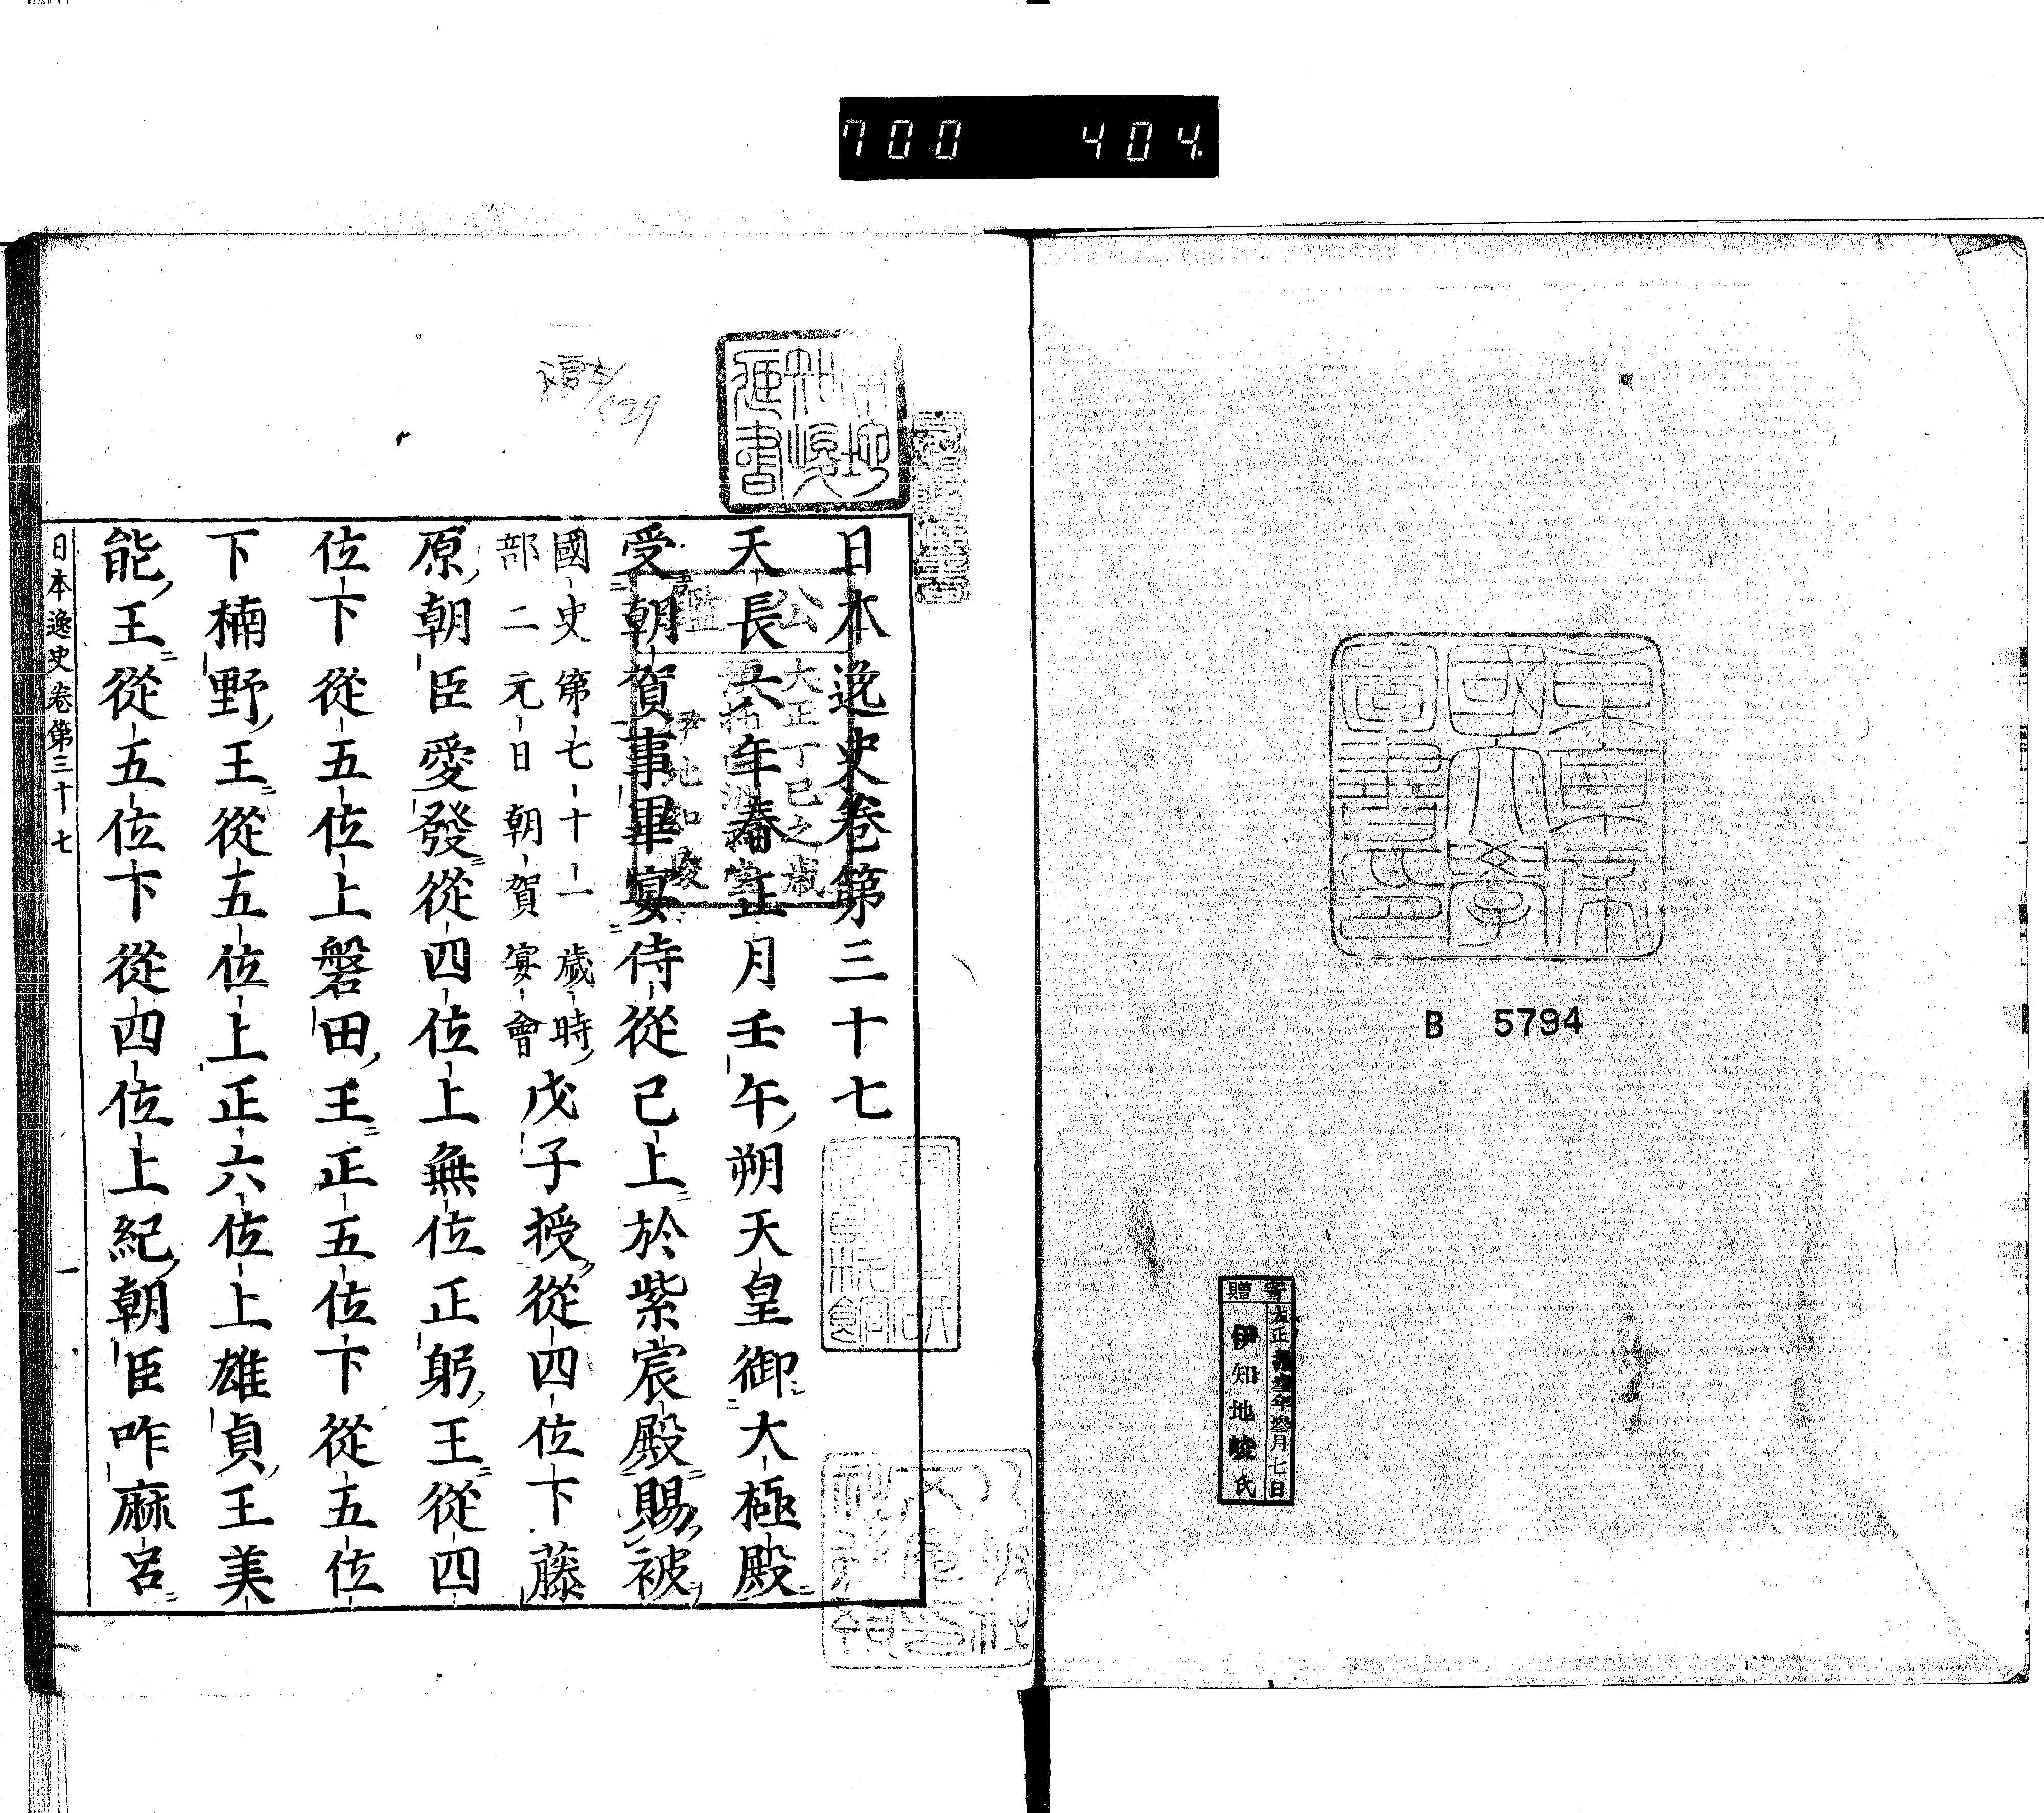 700 404
東京帝
國大學
圖書印
B 5794
寄贈
大正 年叁月七日
伊知地 氏
日本逸史卷第三十七
天長六年春正月壬午朔天皇御大極殿
受朝賀事畢宴侍從已上於紫宸殿賜被
國史第七十一 歲時
部二元日朝賀 宴會
戊子授從四位下藤
原朝臣愛發從四位上無位正躬王從四
位下從五位上磐田王正五位下從五位
下楠野王從五位上正六位上雄貞王美
能王從五位下從四位上紀朝臣咋麻呂
日本逸史卷第三十七 一
公
大正丁巳之歲
複本
929